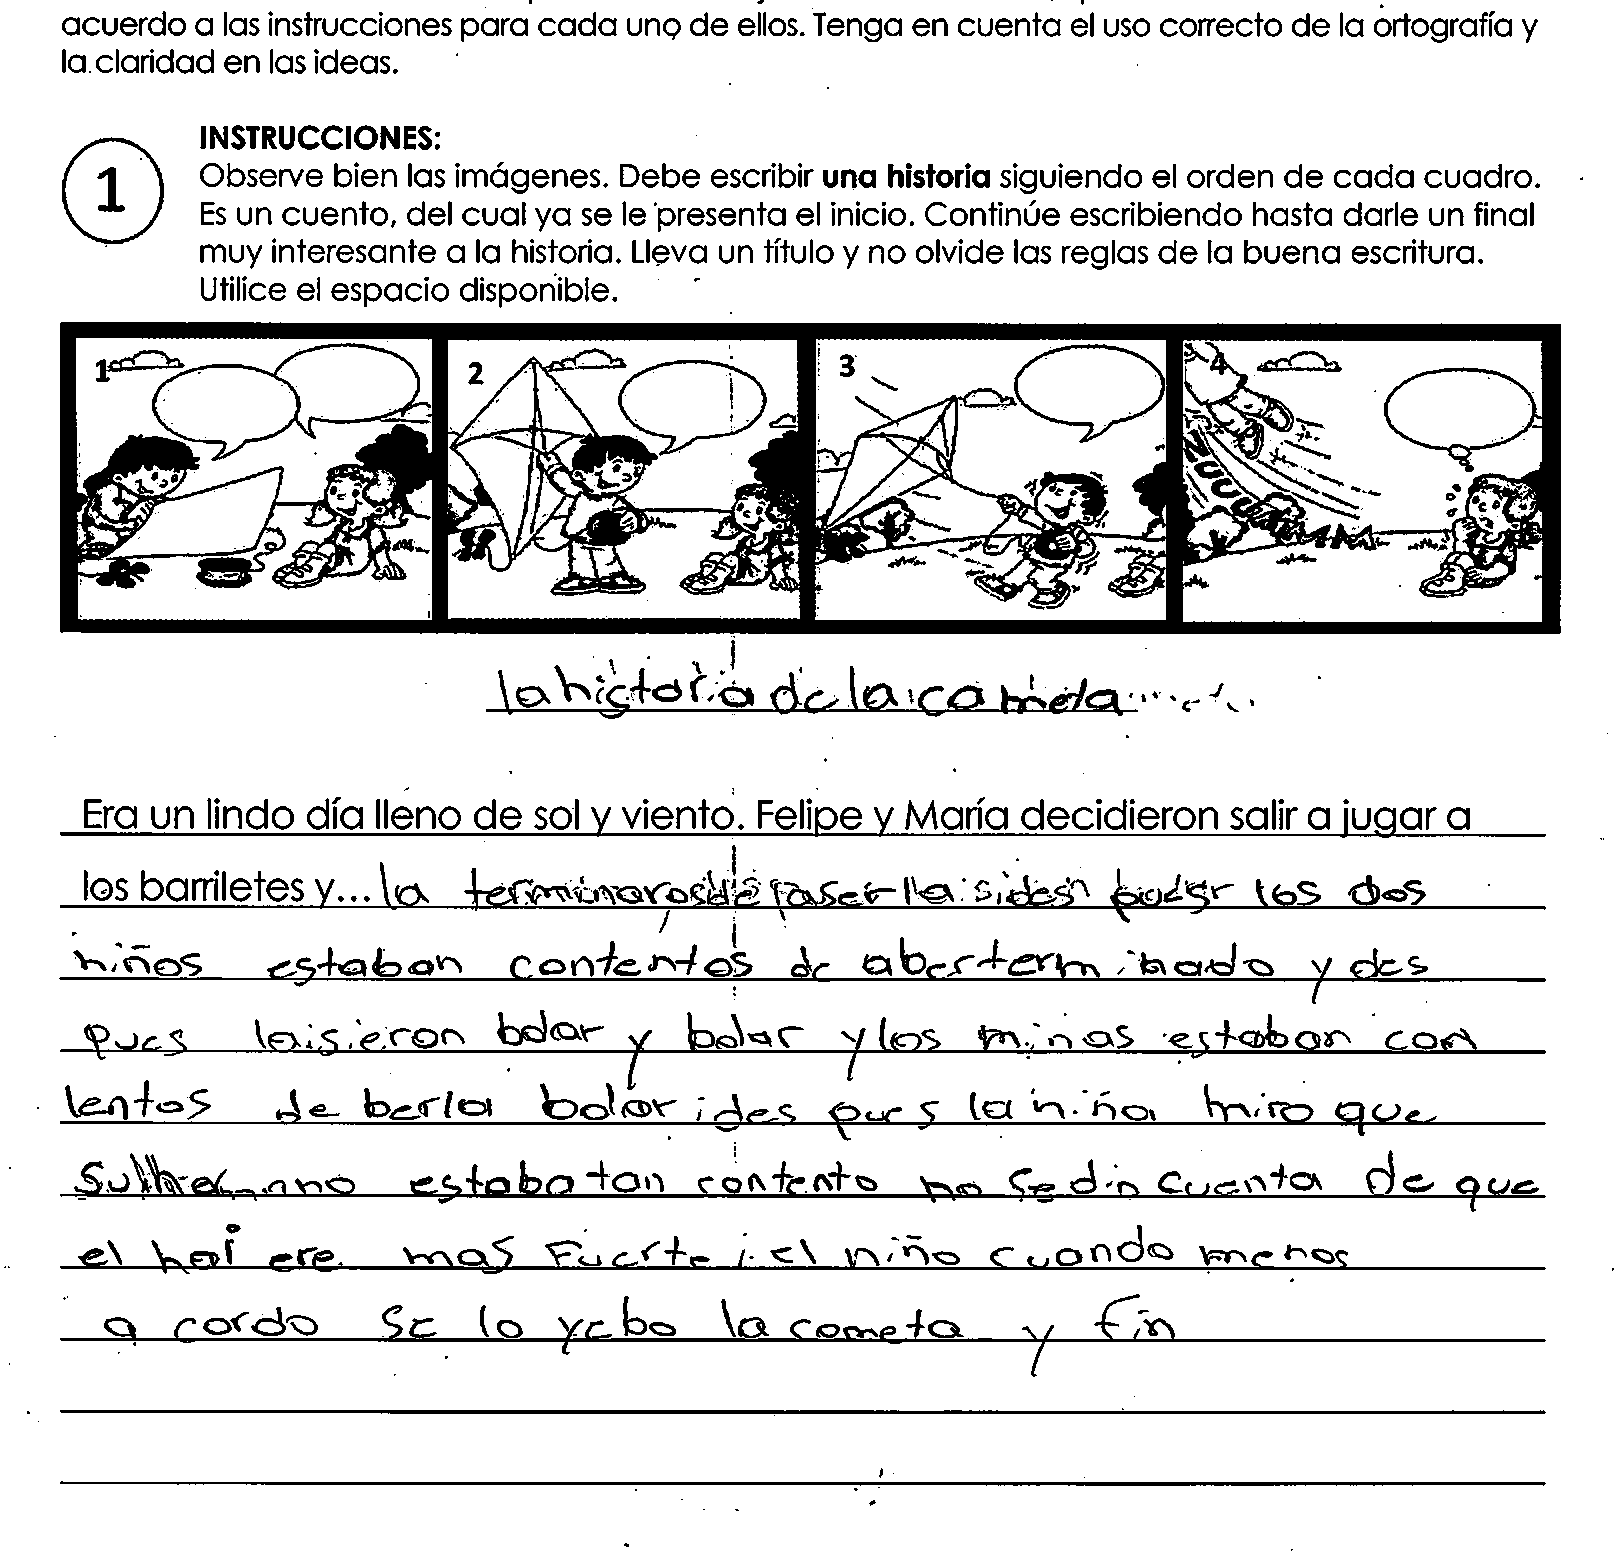 acuerdo a las instrucciones para cada uno de ellos. Tenga en cuenta el uso correcto de la ortografía y
la claridad en las ideas.
1
INSTRUCCIONES:
Observe bien las imágenes. Debe escribir una historia siguiendo el orden de cada cuadro.
Es un cuento, del cual ya se le presenta el inicio. Continúe escribiendo hasta darle un final
muy interesante a la historia. Lleva un título y no olvide las reglas de la buena escritura.
Utilice el espacio disponible.
1 2 3 4
la historia de la
Era un lindo día lleno de sol y viento. Felipe y María decidieron salir a jugar a
los barriletes y... la los dos
niños estaban contentos de aberterminado y des
pues laisieron bolar y bolar y los estaban con
tentos de berla bolar i des pues la niña miro que
estaba tan contento no se dio cuenta de que
el hai ere mas Fuerte i el niño cuando menos
a cordo se lo yebo la cometa y fin